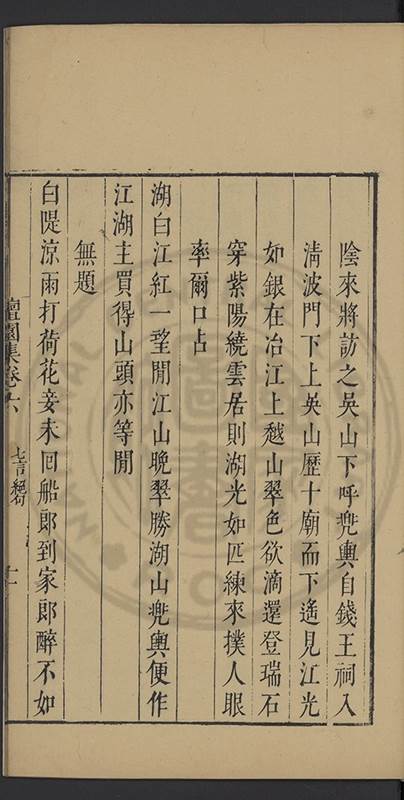 陰來將訪之吳山下呼兠輿自錢王祠入
清波門下上吳山歷十廟而下遙見江光
如銀在冶江上越山翠色欲滴還登瑞石
穿紫陽繞雲居則湖光如匹練來撲人眼
率爾口占
湖白江紅一望閒江山晚翠勝湖山兠輿便作
江湖主買得山頭亦等閒
無題
白隄涼雨打荷花妾未回船郎到家郎醉不如
檀園集卷六
七言絕句